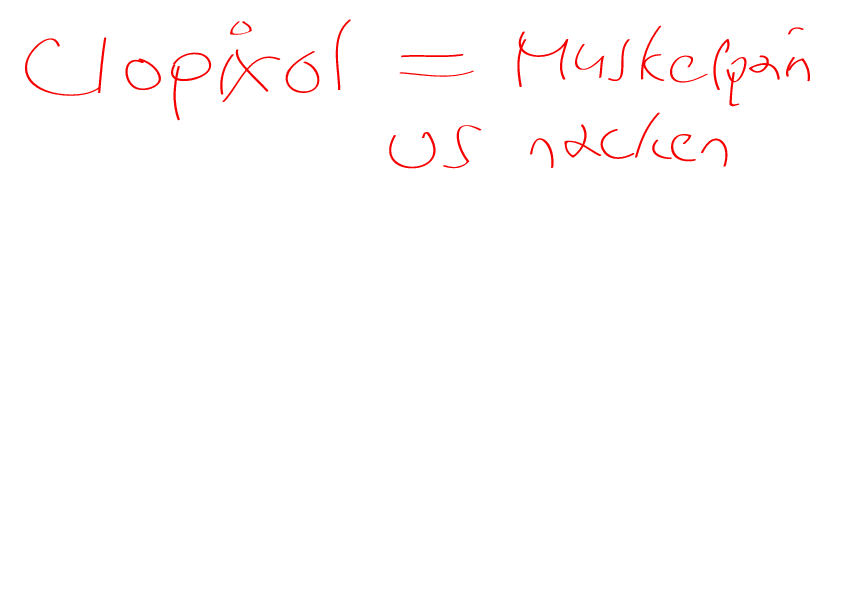 Clopixol = Muskelpain
nacken